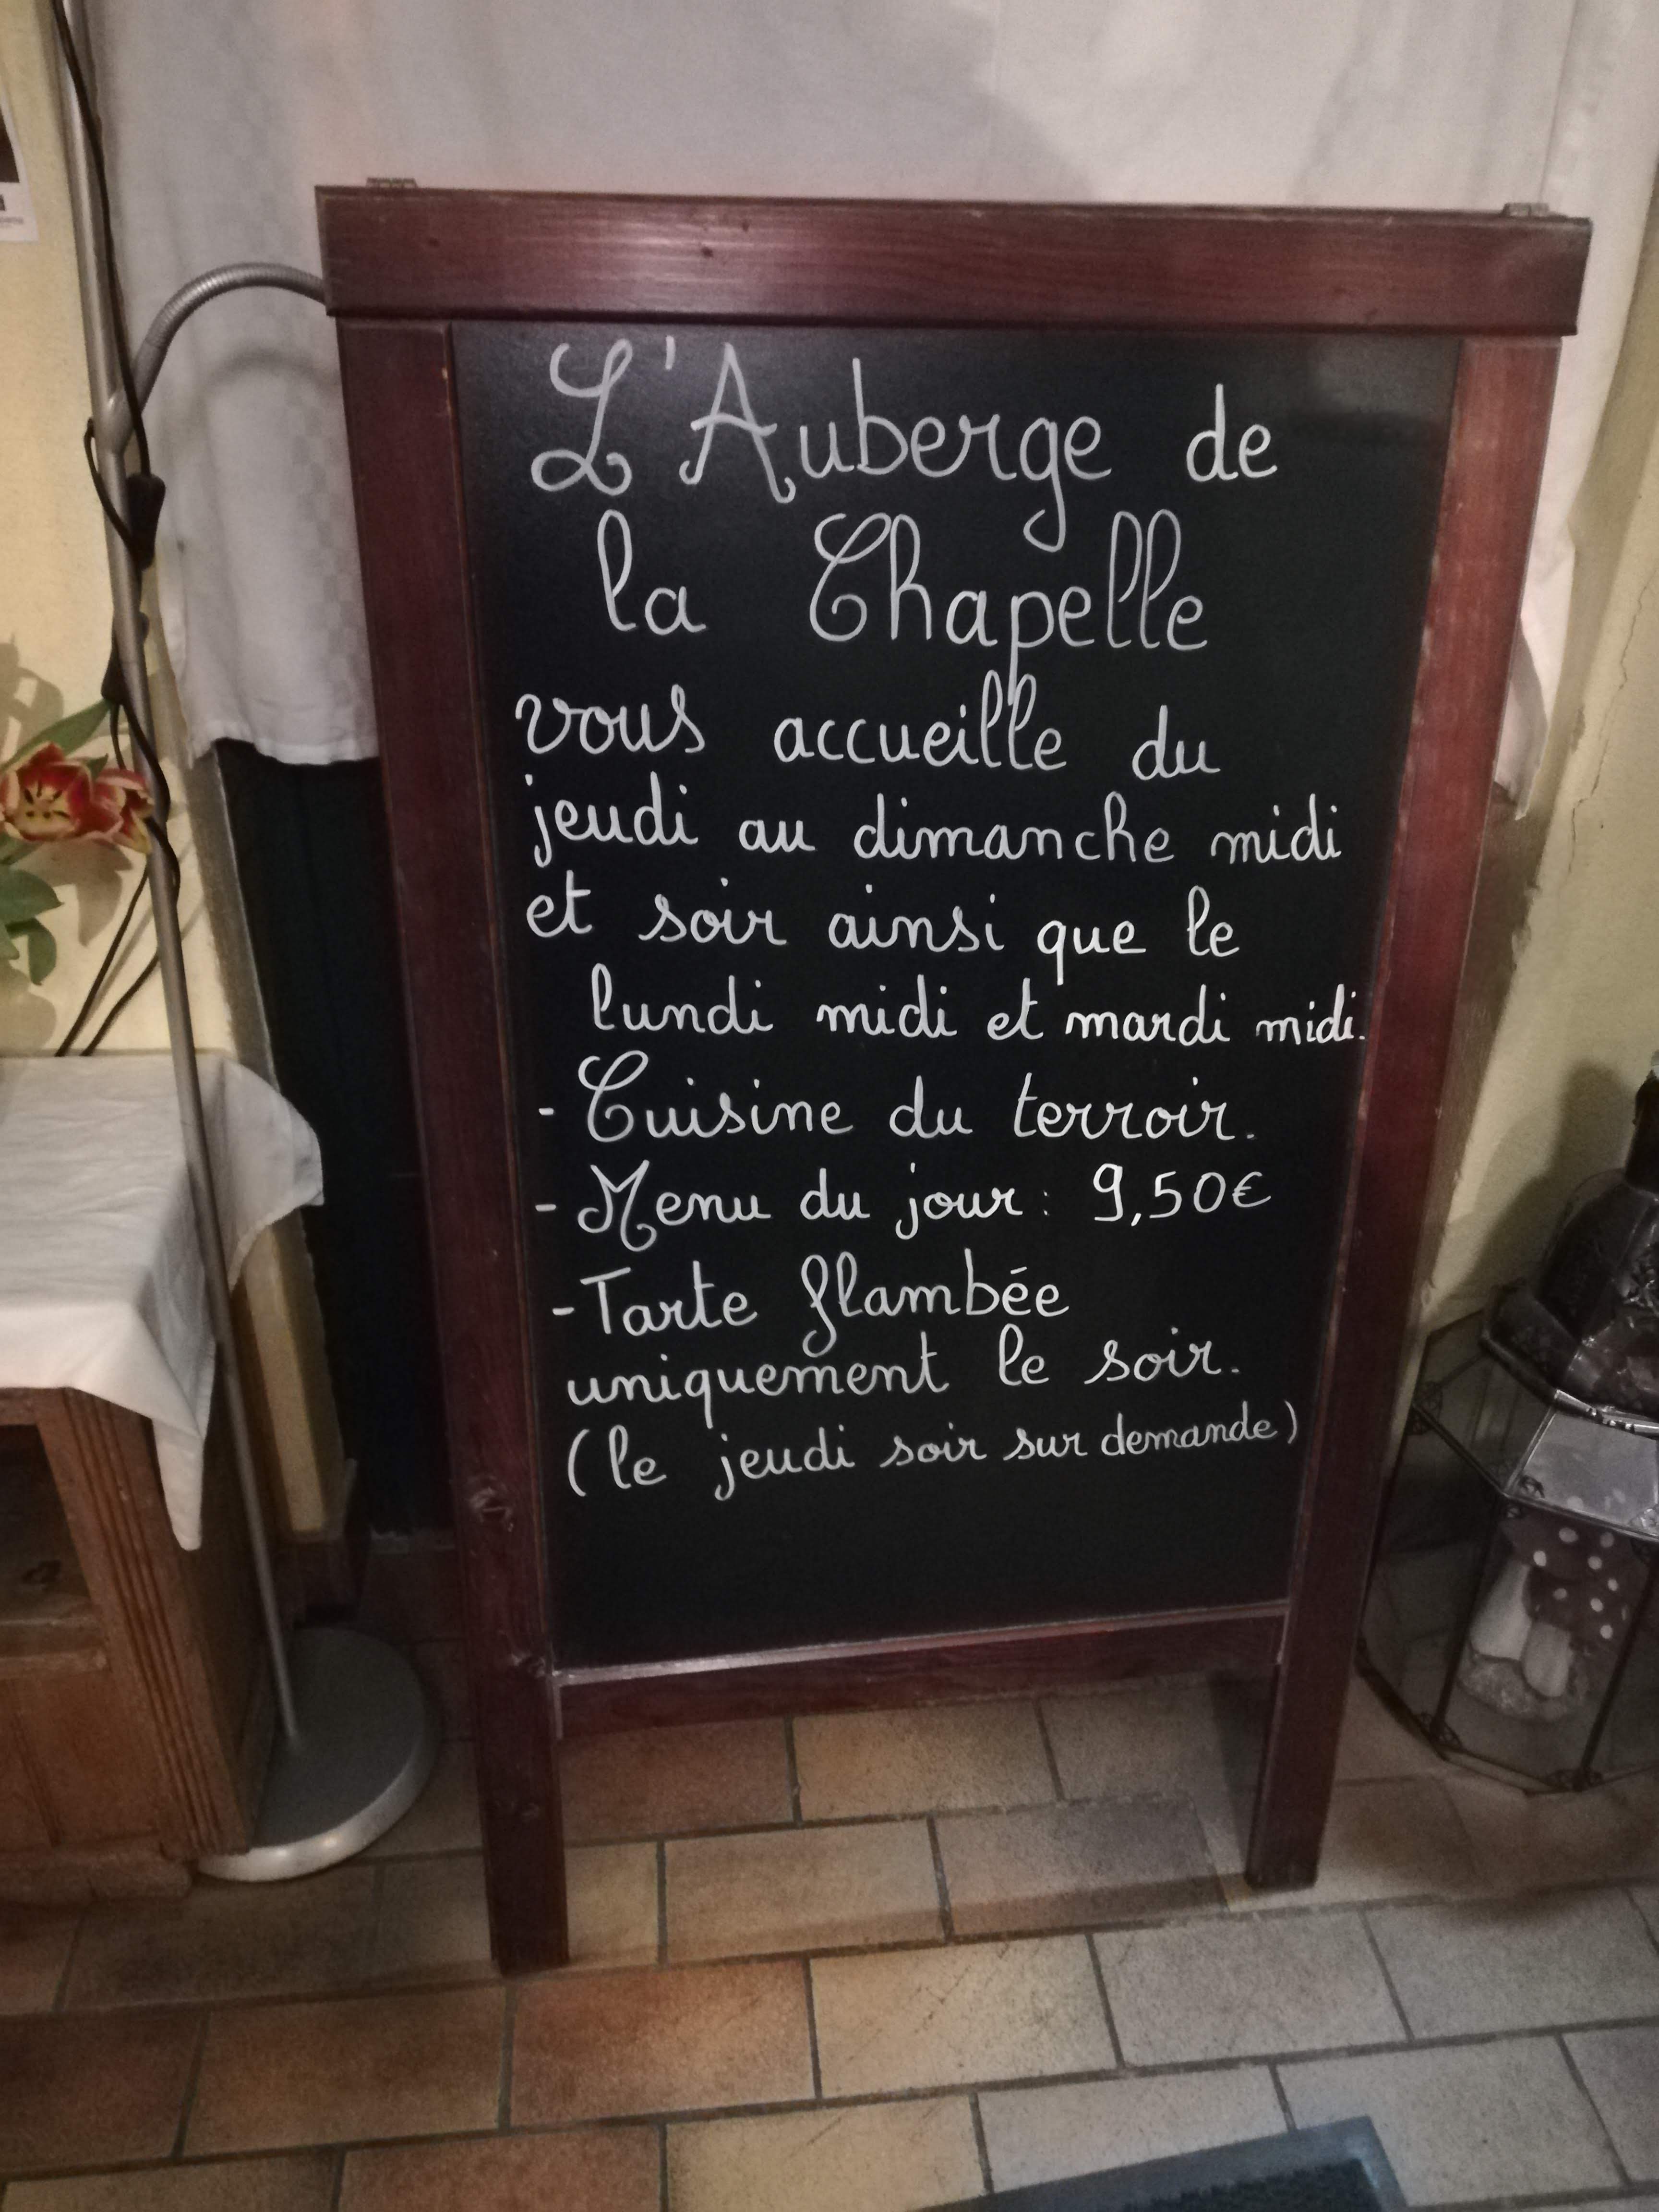 L'Auberge de
la Chapelle
vous accueille du
jeudi au dimanche midi
et soir ainsi que le
lundi midi et mardi midi.
- Cuisine du terroir.
- Menu du jour : 9,50€
- Tarte flambée
uniquement le soir.
(le jeudi soir sur demande)